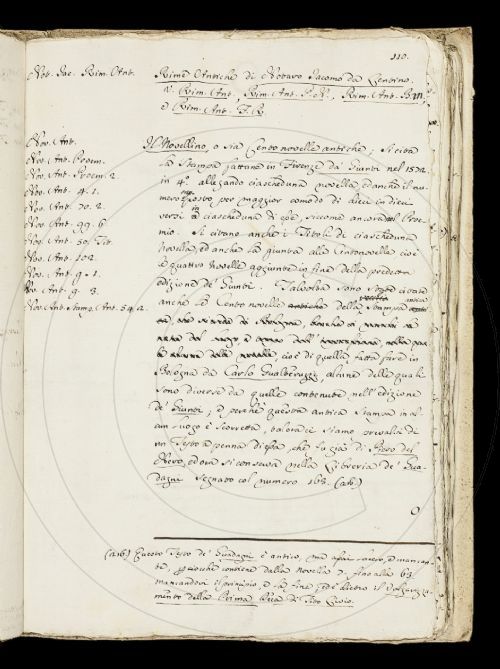 110.
Not. Jac. Rim. Ant.
Rime Antiche di Notaro Jacomo da Lentino.
V. Rim. Ant., Rim. Ant. P. N., Rim. Ant. B M,
e Rim. Ant. F. R.
Nov. Ant.
Nov. Ant. Proem.
Nov. Ant. Proem. 2
Nov. Ant. 4. 1.
Nov. Ant. 20. 2.
Nov. Ant. 99. 6
Nov. Ant. 50. Tit.
Nov. Ant. 102.
Nov. Ant. g. 1.
Nov. Ant. g. 3.
Nov. Ant. Stamp. Ant. 54. 2.
Il Novellino, o sia Cento novelle antiche; Si cita
la Stampa fatta in Firenze da' Giunti nel 1572
in 4º. allegando ciascheduna novella, ed anche il nu-
mero posto per maggior comodo di dieci in dieci
versi a ciascheduna di esse, siccome ancora al Proe-
mio. Si citano anche i Titoli di ciascheduna
Novella, ed anche la giunta alle Cento novelle cioè
le quattro Novelle aggiunte in fine della predetta
edizione de' Giunti. Talvolta sono state citate
anche le Cento novelle antiche della Stampa antica
cioè di quella fatta fare in
Bologna da Carlo Gualteruzzi, alcune delle quali
sono diverse da quelle contenute nell'edizione
de' Giunti; e perchè questa antica Stampa in al-
cun luogo è scorretta, talora ci siamo prevalsi di
un Testo a penna di essa, che fu già di Piero del
Nero, ed ora si conserva nella Libreria de' Gua-
dagni segnato col numero 165. (216)
(216) Questo Testo de' Guadagni è antico, ma assai
contiene dalla Novella 7. fino alla 63
mancandovi il principio, e la fine ed è dietro il Volgarizza-
mento della Prima Deca di Tito Livio.